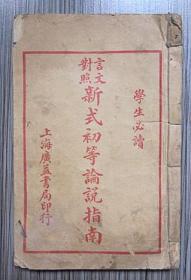 學生必讀
言文
對照
新式初等論說指南
上海廣益書局印行